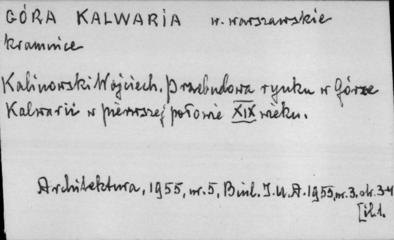 GÓRA KALWARIA w. warszawskie
kramnice
Kalinowski Wojciech. Przebudowa rynku w Górze
Kalwarii w pierwszej połowie XIX wieku.
Architektura, 1955, nr. 5, Biul. I.U.A. 1955, nr. 3. str. 3-4
[il.1.